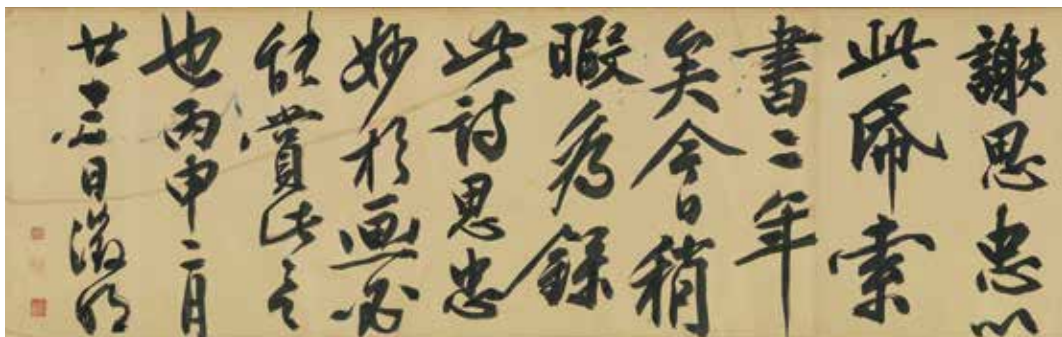 謝思忠以
此帋索
書二年
矣今日稍
暇為錄
此詩思忠
妙於画必
能賞此言
也丙申二月
廿日徵明